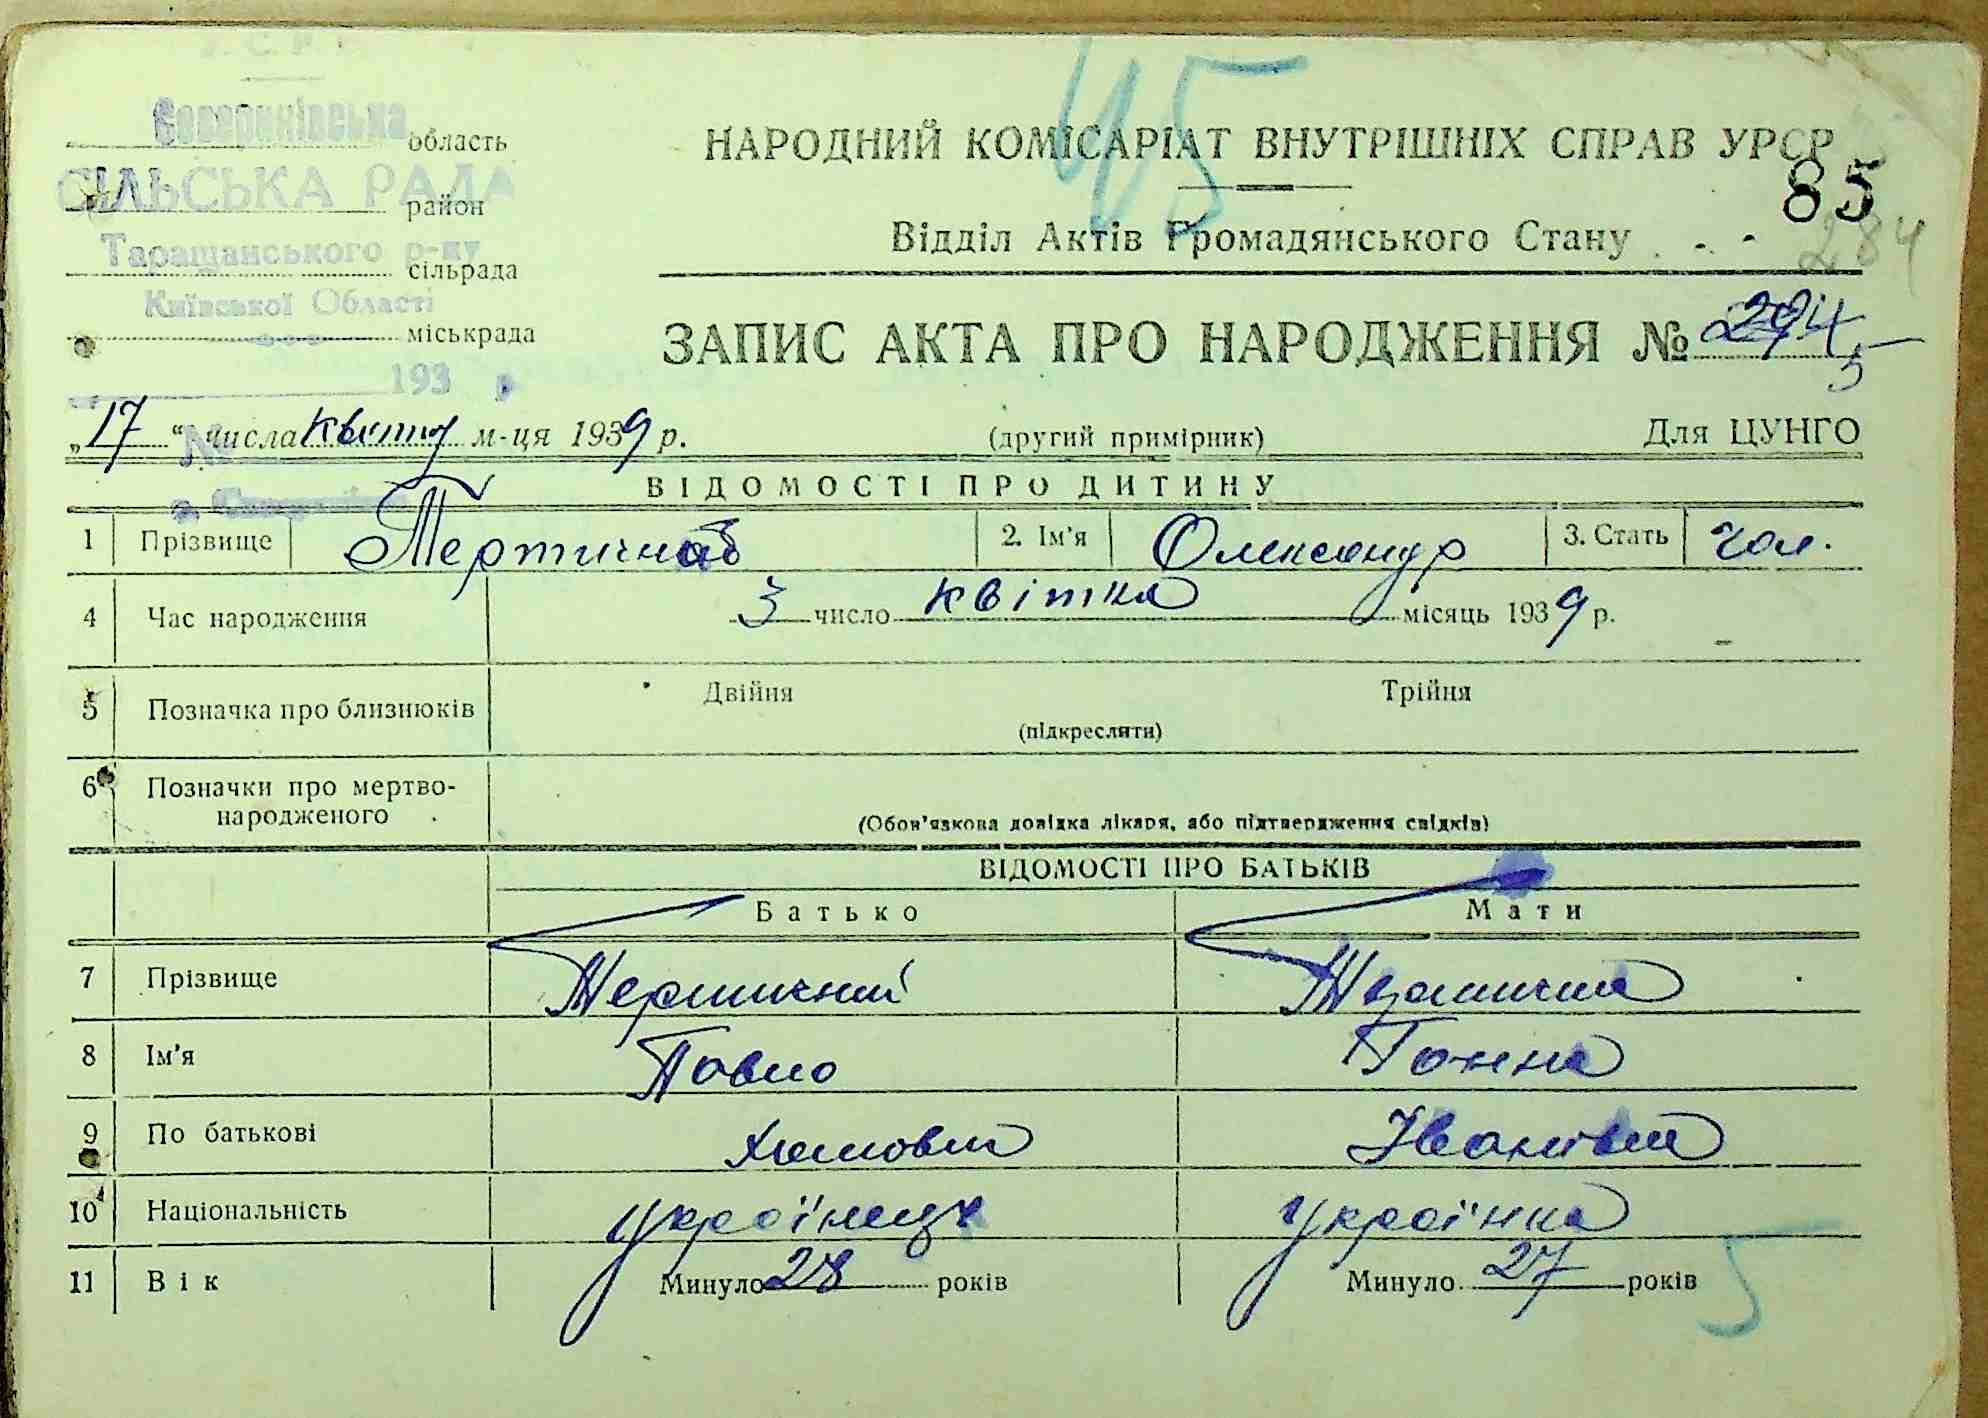 45
область
НАРОДНИЙ КОМІСАРІАТ ВНУТРІШНІХ СПРАВ УРСР
СІЛЬСЬКА РАДА
район
85
Таращанського р-ну
сільрада
Відділ Актів Громадянського Стану
284
Київської Області
міськрада
ЗАПИС АКТА ПРО НАРОДЖЕННЯ №
193 р
„17“ числа квітня м-ця 1939 р.
(другий примірник)
Для ЦУНГО
№
ВІДОМОСТІ ПРО ДИТИНУ
1 Прізвище Тертичний 2. Ім'я Олександр 3. Стать чол.
4 Час народження 3 число квітня місяць 1939 р.
5 Позначка про близнюків Двійня Трійня
(підкреслити)
6 Позначки про мертво-
народженого
(Обов'язкова довідка лікаря, або підтвердження свідків)
ВІДОМОСТІ ПРО БАТЬКІВ
Батько Мати
7 Прізвище Тертичний Тертична
8 Ім'я Павло Ганна
9 По батькові Іванівна
10 Національність українець українка
11 Вік Минуло 28 років Минуло 27 років
5